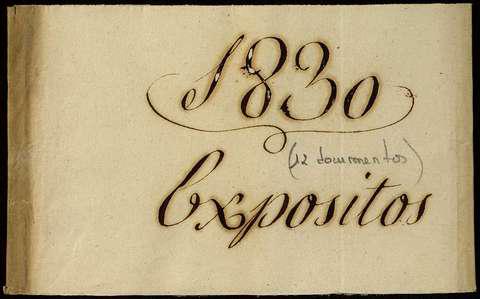 1830
(12 documentos)
Expositos